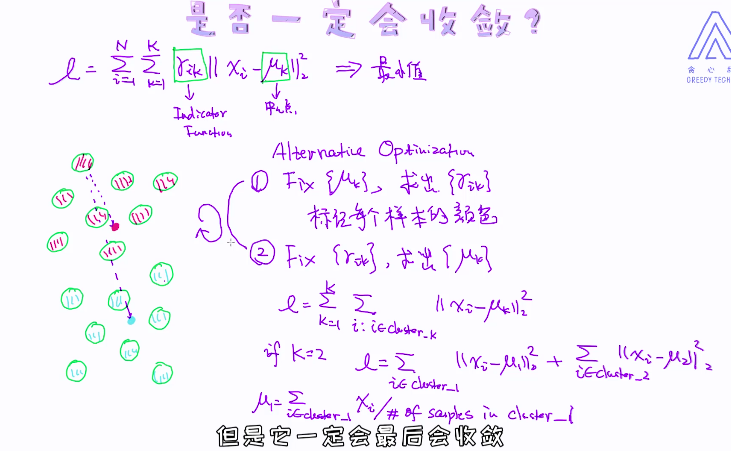 是否一定会收敛?
ℓ = Σ_{i=1}^{N} Σ_{k=1}^{K} γ_{ik} ||x_i - μ_k||_2^2 ⇒ 最小值
Indicator Function
中心点
贪心
GREEDY TECH
Alternative Optimization
① Fix {μ_k}, 求出 {γ_{ik}}
标记每个样本的颜色
② Fix {γ_{ik}}, 求出 {μ_k}
ℓ = Σ_{k=1}^{K} Σ_{i: i∈cluster_k} ||x_i - μ_k||_2^2
if K=2 ℓ = Σ_{i∈cluster_1} ||x_i - μ_1||_2^2 + Σ_{i∈cluster_2} ||x_i - μ_2||_2^2
μ_1 = Σ_{i∈cluster_1} x_i / # of samples in cluster_1
但是它一定会最后会收敛